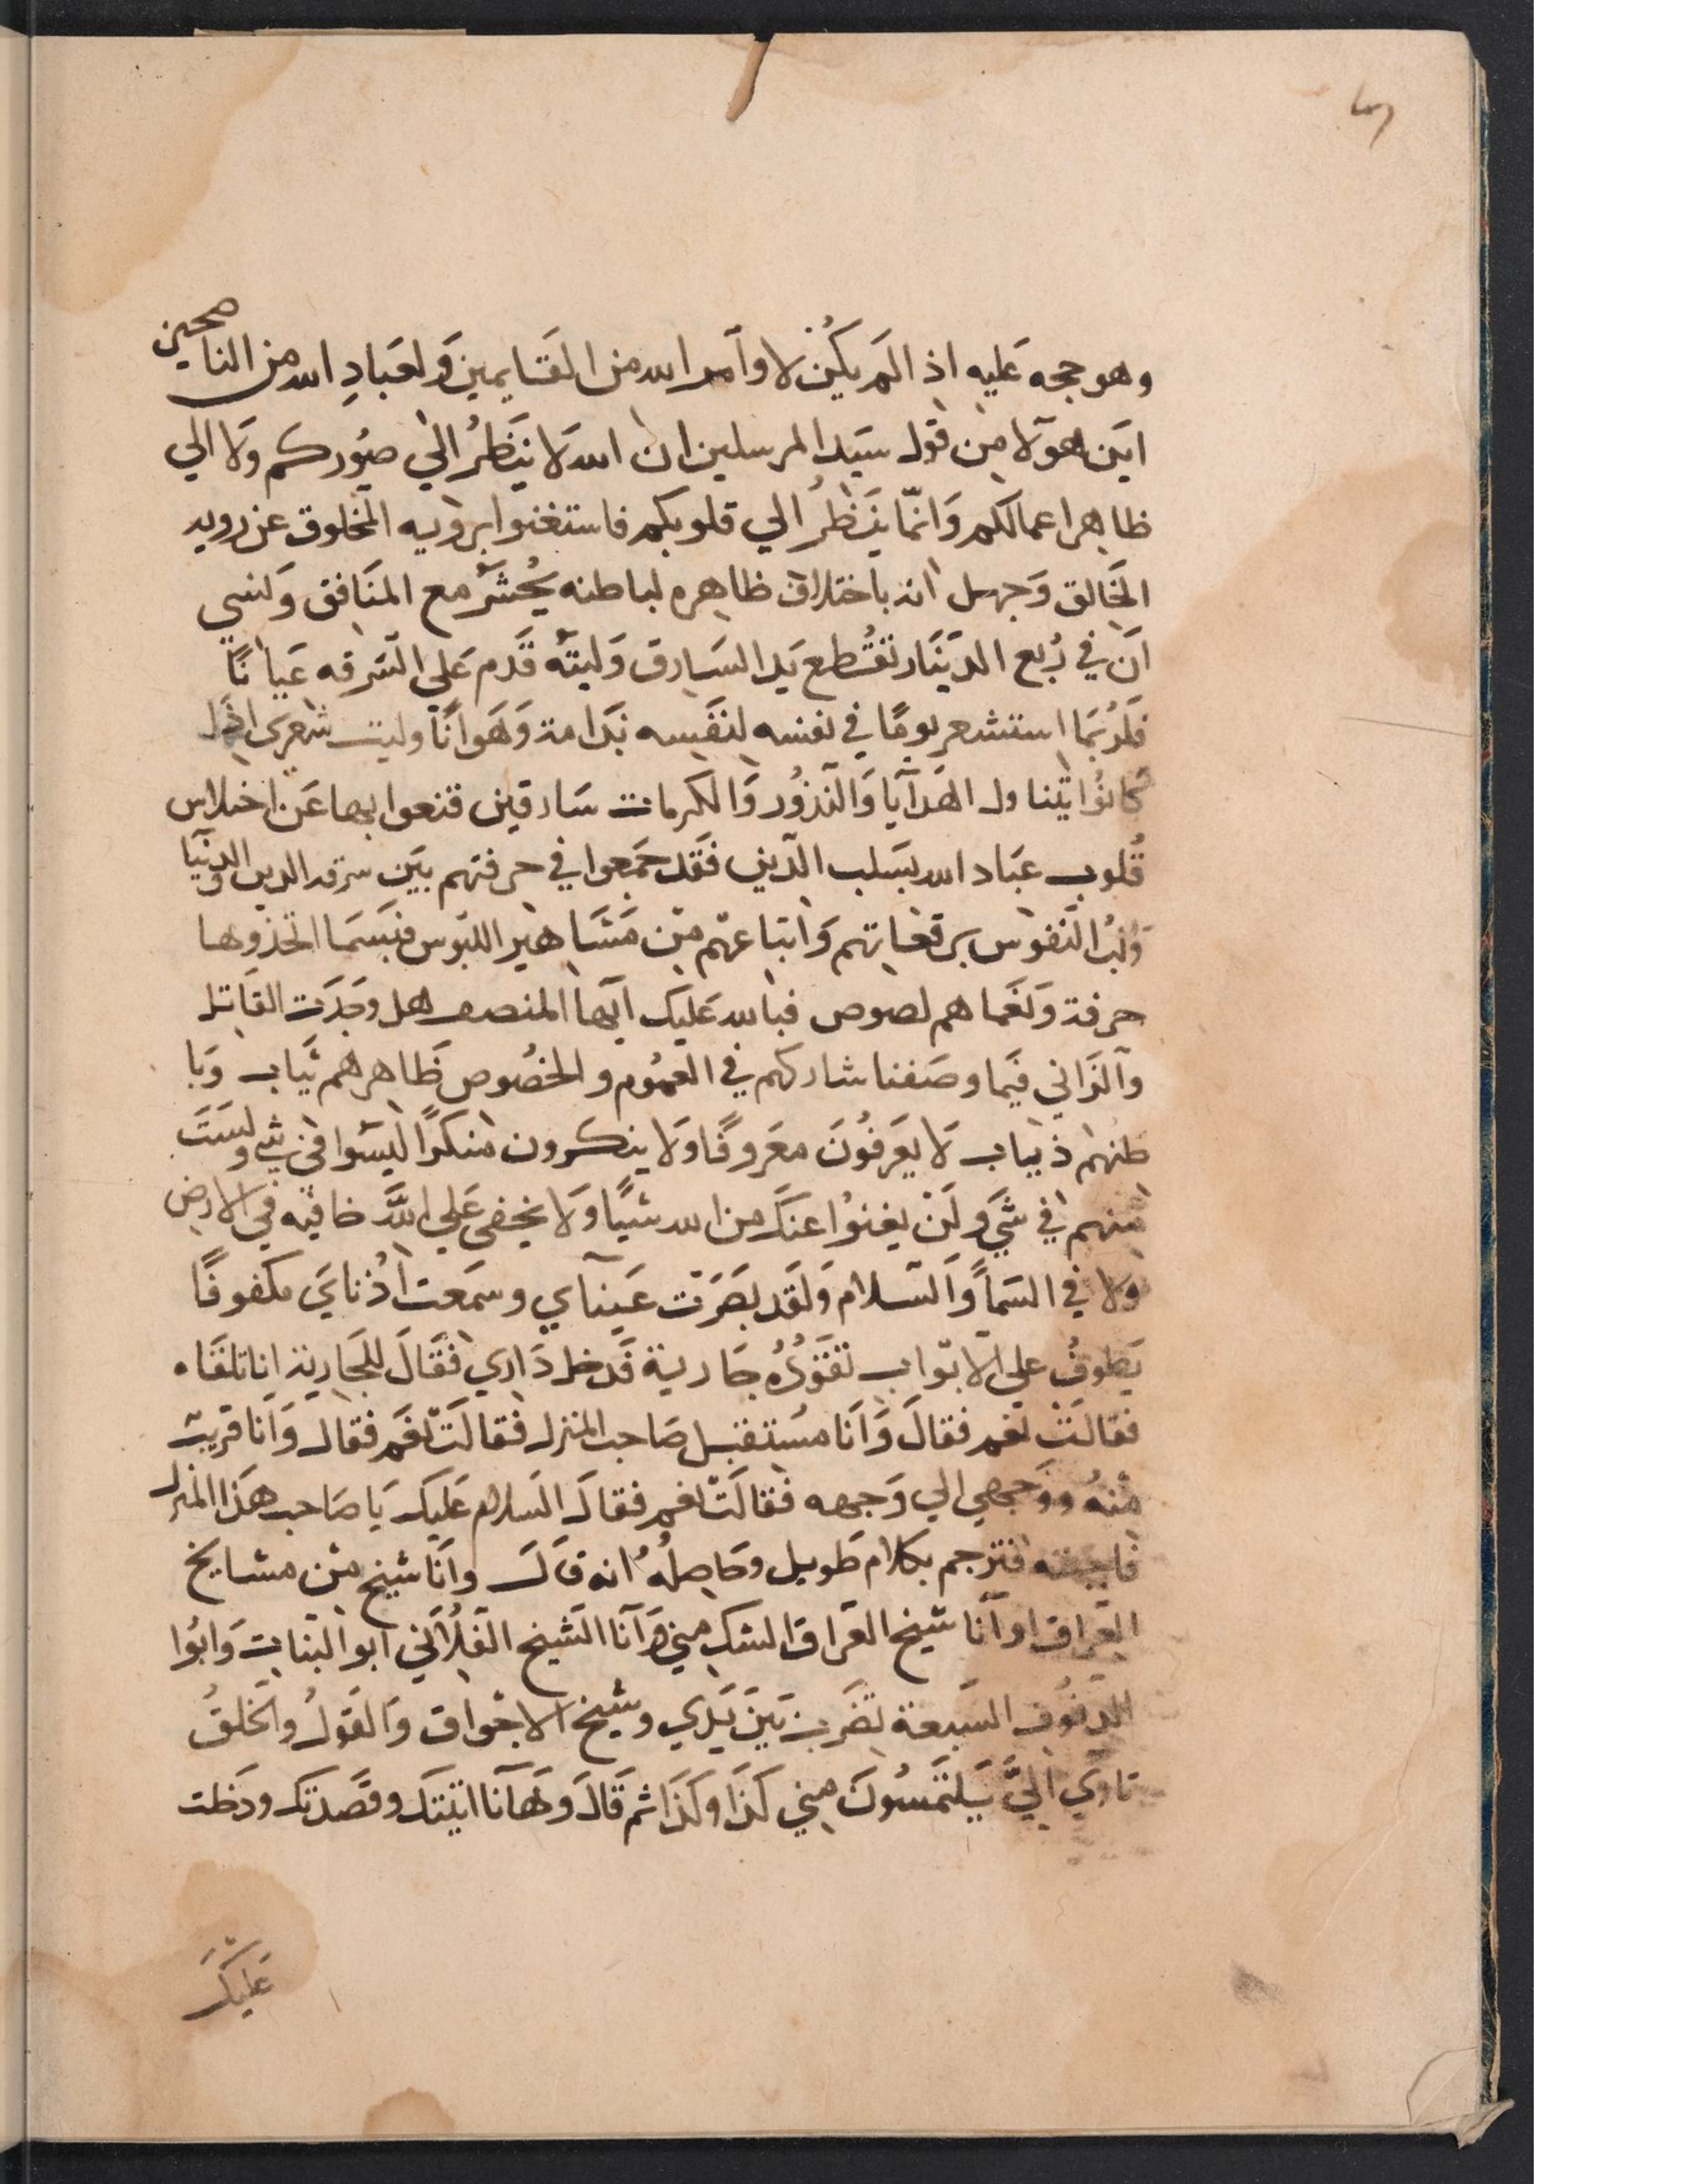 وهو حجه عَليه اذ الم يكُن لاوآمر الله من القَايمين وَلعَبادِ الله من الناصحين
اين هوَلا من قول سَيد المرسلين ان الله لَا يَنظُر الي صوُركم ولَا الي
ظاهر اعمالكم وَانمّا يَنظُر الي قلوبكم فاستغنوا برويه المخلوق عن رويه
الخَالق وَجهل انه باختلاف ظاهره لباطنه يُحشَر مع المنَافق وَلنسي
اَن في رُبع الدّينَار تقُطع يَد السَارق وَليتَه قَدم عَلي السَرقه عَيانًا
فلَرُبمَا استشعر يومًا في نفسه لنفَسه نَدامة وَهَوانًا وليت شعري اذ
كانوُا بتناول الهَدآيَا وَالنذوُر وَالكرمات سَارقين قنعوا بها عَن اختلاس
قُلوب عبَاد الله بسَلب الدّين فقَد جمَعوا في حرفتهم بيَن سرقه الدين والدنيَا
النفوس برقعَاتهم وَاتباعهم من مَشَاهير اللبوس فبَسَما اتخذوها
حرفة وَلغما هم لصوص فبالله عَليك اَيها المنصف هل وجَدَت القاتل
وآلزَاني فيَما وصَفنا شاركهم في العمُوم والخصُوص ظَاهرهم ثَياب وَبا
طنهم ذياب لَا يعَرفوُنَ معَروفًا وَلا ينكرون منكرًا ليَسوا في شي ولسَتَ
منهم في شَي وَلَن يغنوُا عنَك من الله شيًا وَلَا يخفي عَلي اللَّه خافيه في الارض
ولا في السَمآ وَالسَلام وَلقَد بصَرَت عَينآي وسمَعت اُذنايَ مكفوفًا
يَطوفُ علي الابوَاب تقَوُدُه جَارية قَد خل دَاري فقَالَ للجَارية اناتلقَاه
فقالَتْ نعم فقالَ وَاَنَا مسَتقبل صَاحب المنزل فقالَت نعَم فقال وَاَنا قريب
منهُ ووَجهي الي وَجهه فقالَت نعم فقالَ السَلام عَليك يَا صَاحب هَذا المنزل
فاجبته فترجم بكلام طَويل وحَاصِلُه انه قَالَ وانَا شيخ من مشايخ
العَراق اواَنا شيخ العَراق الشك مني وَاَنا الشَيخ الفلُاني ابوا البنَات وَابوُا
الدفوُف السَبعة تضَرب بَينَ يَدي وشيخ الاجوَاق وَالقَولُ وَالخَلقُ
تاوي اليَّ يَلتمَسُونَ مني كَذَا وكَذَا ثم قَالَ وَهَآنا اتيتَك وقَصَدتك ودَخلت
عَليَكَ